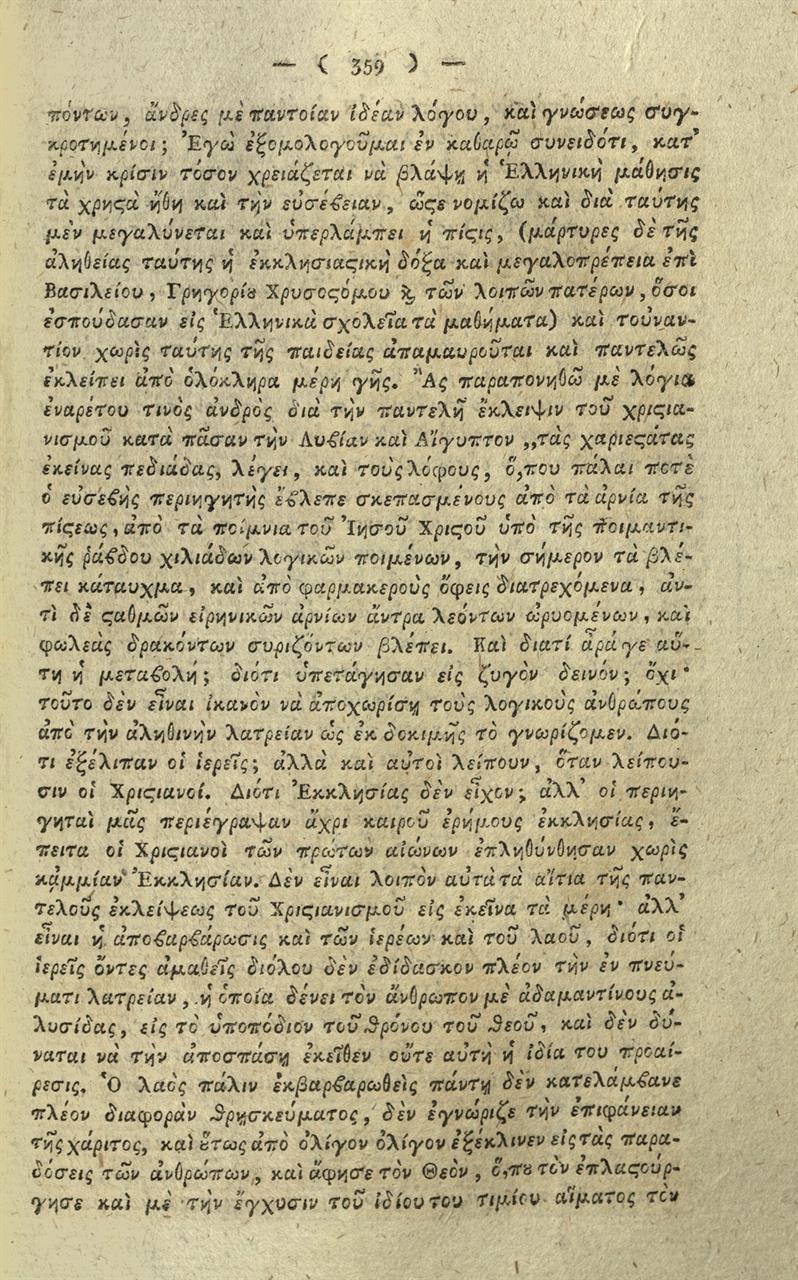 — ( 359 ) —
πόντων, ἄνδρες μὲ παντοίαν ἰδέαν λόγου, καὶ γνώσεως συγ-
κροτημένοι; Ἐγὼ ἐξομολογοῦμαι ἐν καθαρῷ συνειδότι, κατ'
ἐμὴν κρίσιν τόσον χρειάζεται νὰ βλάψῃ ἡ Ἑλληνικὴ μάθησις
τὰ χρηϛὰ ἤθη καὶ τὴν εὐσέβειαν, ὥϛε νομίζω καὶ διὰ ταύτης
μὲν μεγαλύνεται καὶ ὑπερλάμπει ἡ πίϛις, (μάρτυρες δὲ τῆς
ἀληθείας ταύτης ἡ ἐκκλησιαϛικὴ δόξα καὶ μεγαλοπρέπεια ἐπὶ
Βασιλείου, Γρηγορίȣ Χρυσοϛόμου ϗ τῶν λοιπῶν πατέρων, ὅσοι
ἐσπούδασαν εἰς Ἑλληνικὰ σχολεῖα τὰ μαθήματα) καὶ τοὐναν-
τίον χωρὶς ταύτης τῆς παιδείας ἀπαμαυροῦται καὶ παντελῶς
ἐκλείπει ἀπὸ ὁλόκληρα μέρη γῆς. Ἂς παραπονηθῶ μὲ λόγια
ἐναρέτου τινὸς ἀνδρὸς διὰ τὴν παντελῆ ἔκλειψιν τοῦ χριϛια-
νισμοῦ κατὰ πᾶσαν τὴν Λυβίαν καὶ Αἴγυπτον „τὰς χαριεϛάτας
ἐκείνας πεδιάδας, λέγει, καὶ τοὺς λόφους, ὅ,που πάλαι ποτὲ
ὁ εὐσεβὴς περιηγητὴς ἔβλεπε σκεπασμένους ἀπὸ τὰ ἀρνία τῆς
πίϛεως, ἀπὸ τὰ ποίμνια τοῦ Ἰησοῦ Χριϛοῦ ὑπὸ τῆς ποιμαντι-
κῆς ῥάβδου χιλιάδων λογικῶν ποιμένων, τὴν σήμερον τὰ βλέ-
πει κάταυχμα, καὶ ἀπὸ φαρμακεροὺς ὄφεις διατρεχόμενα, ἀν-
τὶ δὲ ϛαθμῶν εἰρηνικῶν ἀρνίων ἄντρα λεόντων ὠρυομένων, καὶ
φωλεὰς δρακόντων συριζόντων βλέπει. Καὶ διατί ἆρά γε αὕ-
τη ἡ μεταβολή; διότι ὑπετάγησαν εἰς ζυγὸν δεινόν; ὄχι·
τοῦτο δὲν εἶναι ἱκανὸν νὰ ἀποχωρίσῃ τοὺς λογικοὺς ἀνθρώπους
ἀπὸ τὴν ἀληθινὴν λατρείαν ὡς ἐκ δοκιμῆς τὸ γνωρίζομεν. Διό-
τι ἐξέλιπαν οἱ ἱερεῖς; ἀλλὰ καὶ αὐτοὶ λείπουν, ὅταν λείπου-
σιν οἱ Χριϛιανοί. Διότι Ἐκκλησίας δὲν εἶχον; ἀλλ' οἱ περιη-
γηταὶ μᾶς περιέγραψαν ἄχρι καιροῦ ἐρήμους ἐκκλησίας, ἔ-
πειτα οἱ Χριϛιανοὶ τῶν πρώτων αἰώνων ἐπληθύνθησαν χωρὶς
κᾀμμίαν Ἐκκλησίαν. Δὲν εἶναι λοιπὸν αὐτὰ τὰ αἴτια τῆς παν-
τελοῦς ἐκλείψεως τοῦ Χριϛιανισμοῦ εἰς ἐκεῖνα τὰ μέρη· ἀλλ'
εἶναι ἡ ἀποβαρβάρωσις καὶ τῶν ἱερέων καὶ τοῦ λαοῦ, διότι οἱ
ἱερεῖς ὄντες ἀμαθεῖς διόλου δὲν ἐδίδασκον πλέον τὴν ἐν πνεύ-
ματι λατρείαν, ἡ ὁποία δένει τὸν ἄνθρωπον μὲ ἀδαμαντίνους ἁ-
λυσίδας, εἰς τὸ ὑποπόδιον τοῦ θρόνου τοῦ Θεοῦ, καὶ δὲν δύ-
ναται νὰ τὴν ἀποσπάσῃ ἐκεῖθεν οὔτε αὐτὴ ἡ ἰδία του προαί-
ρεσις. Ὁ λαὸς πάλιν ἐκβαρβαρωθεὶς πάντῃ δὲν κατελάμβανε
πλέον διαφορὰν θρησκεύματος, δὲν ἐγνώριζε τὴν ἐπιφάνειαν
τῆς χάριτος, καὶ ȣ̔́τως ἀπὸ ὀλίγον ὀλίγον ἐξέκλινεν εἰς τὰς παρα-
δόσεις τῶν ἀνθρώπων, καὶ ἄφησε τὸν Θεὸν, ὅ,πȣ τὸν ἐπλαϛούρ-
γησε καὶ μὲ τὴν ἔγχυσιν τοῦ ἰδίου του τιμίου αἵματος τὸν